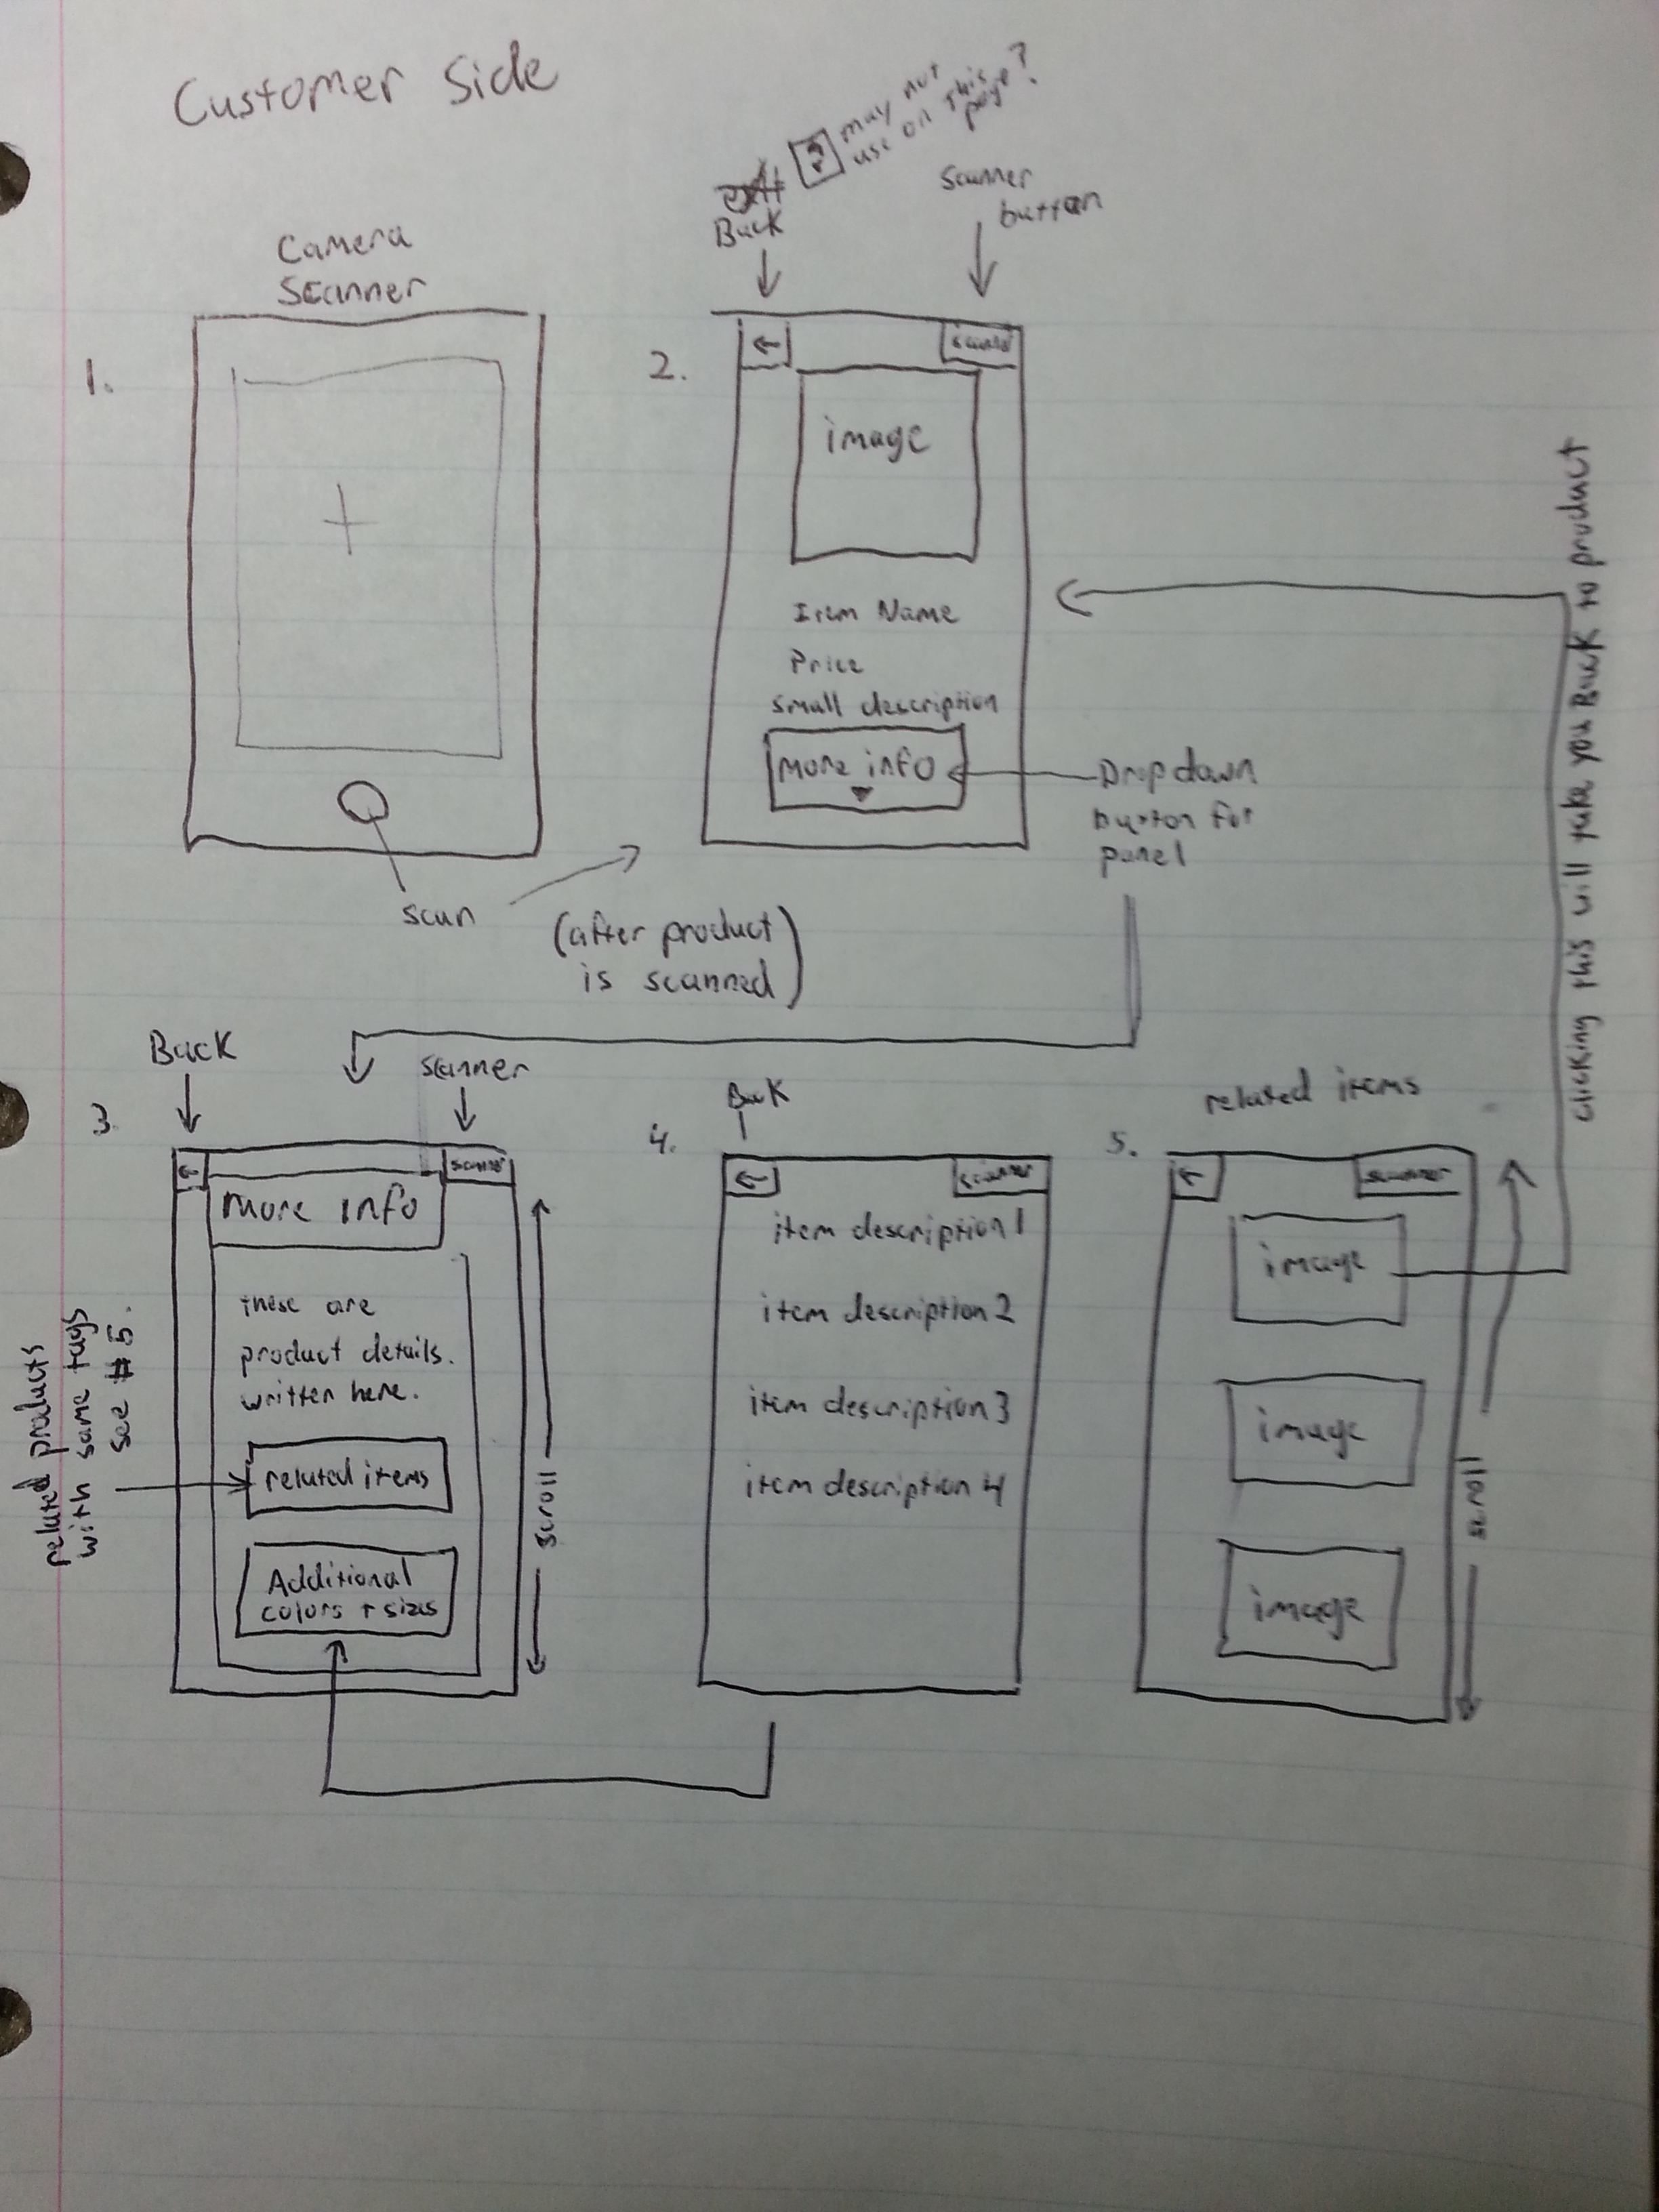 Customer Side
may not
use on this
page?
Back
Scanner
button
Camera
Scanner
1.
2.
←
image
Item Name
Price
small description
more info
Dropdown
button for
panel
scan
(after product
is scanned)
clicking this will take you Back to product
Back
scanner
3.
←
scanner
more info
these are
product details.
written here.
related items
Additional
colors + sizes
scroll
related products
with same tags
see #5.
Back
4.
←
scanner
item description 1
item description 2
item description 3
item description 4
related items
5.
←
scanner
image
image
image
scroll